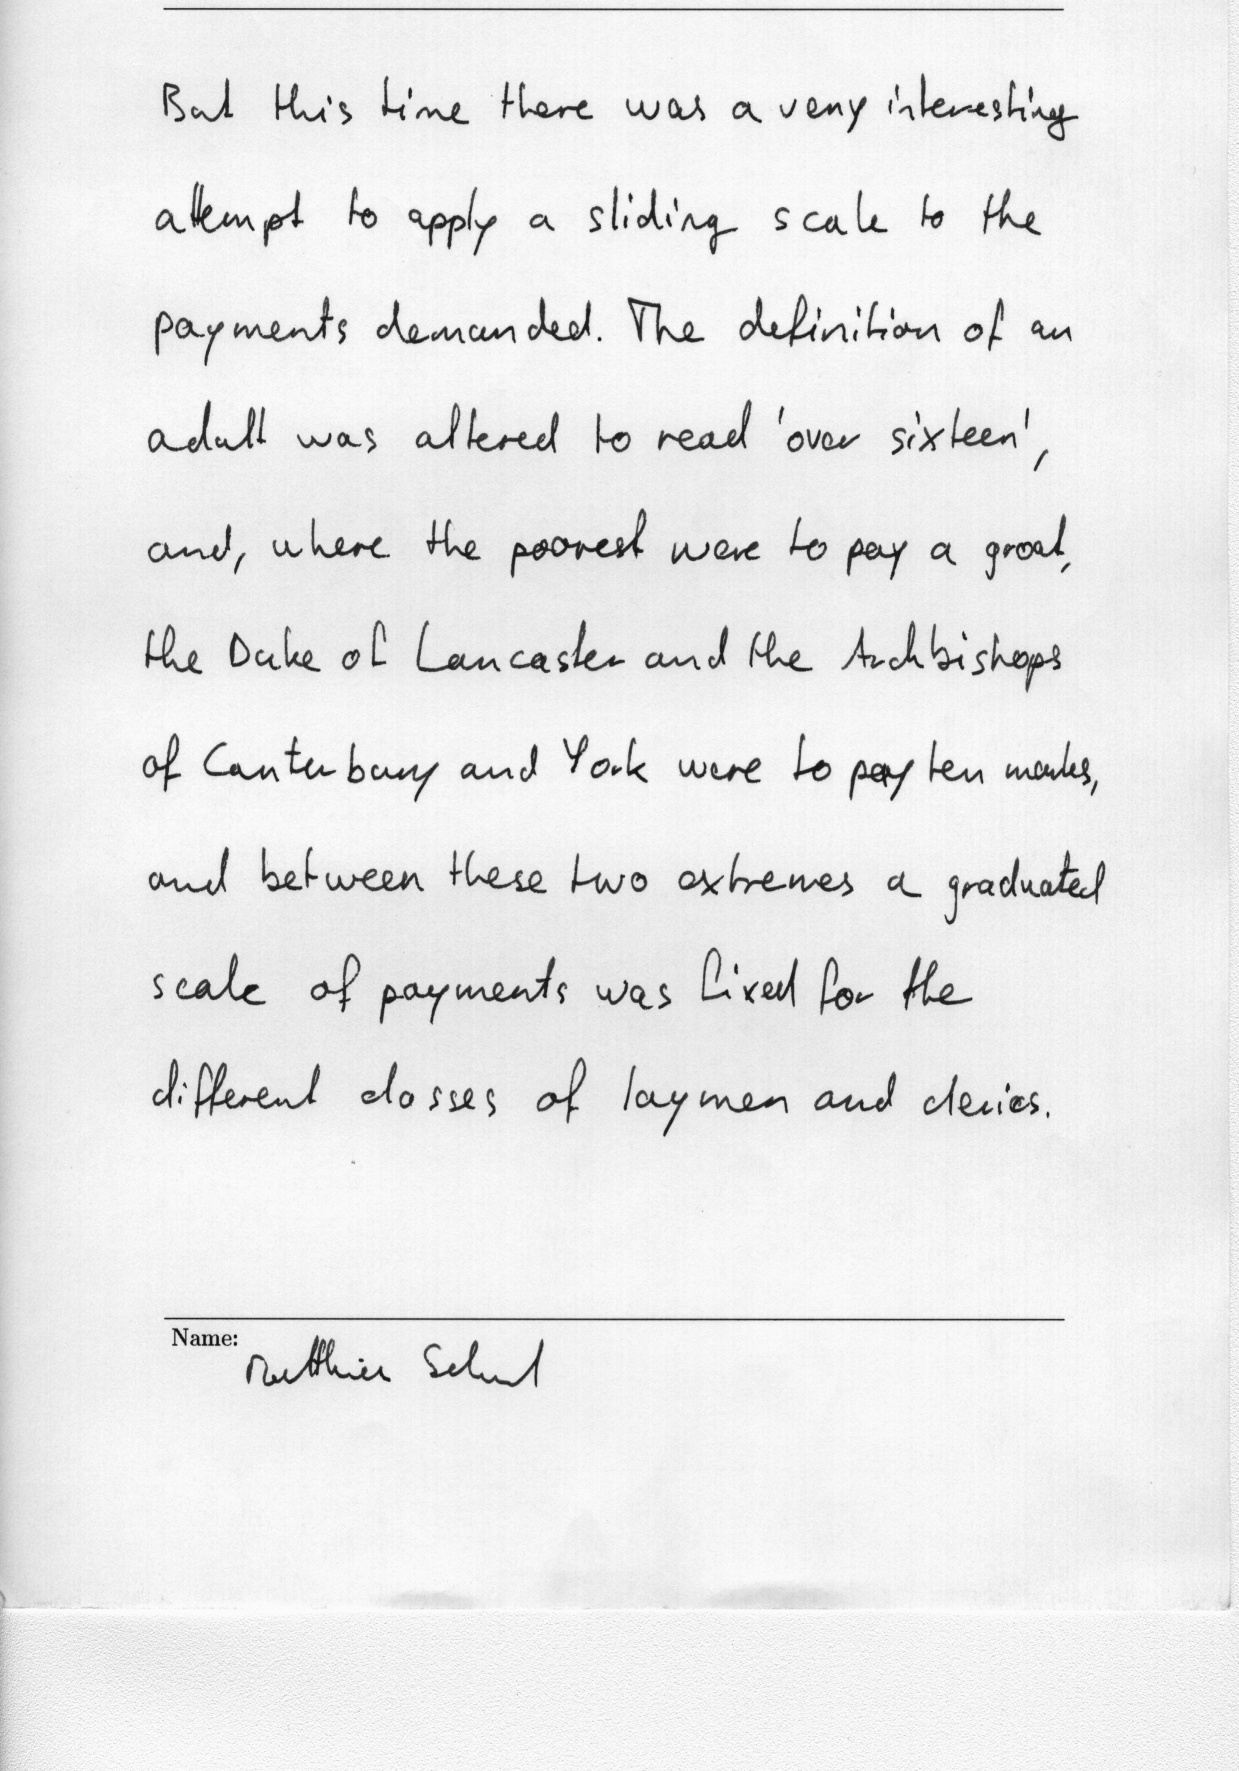 But this time there was a very interesting
attempt to apply a sliding scale to the
payments demanded. The definition of an
adult was altered to read 'over sixteen',
and, where the poorest were to pay a groat,
the Duke of Lancaster and the Archbishops
of Canterbury and York were to pay ten marks,
and between these two extremes a graduated
scale of payments was fixed for the
different classes of laymen and clerics.
Name: